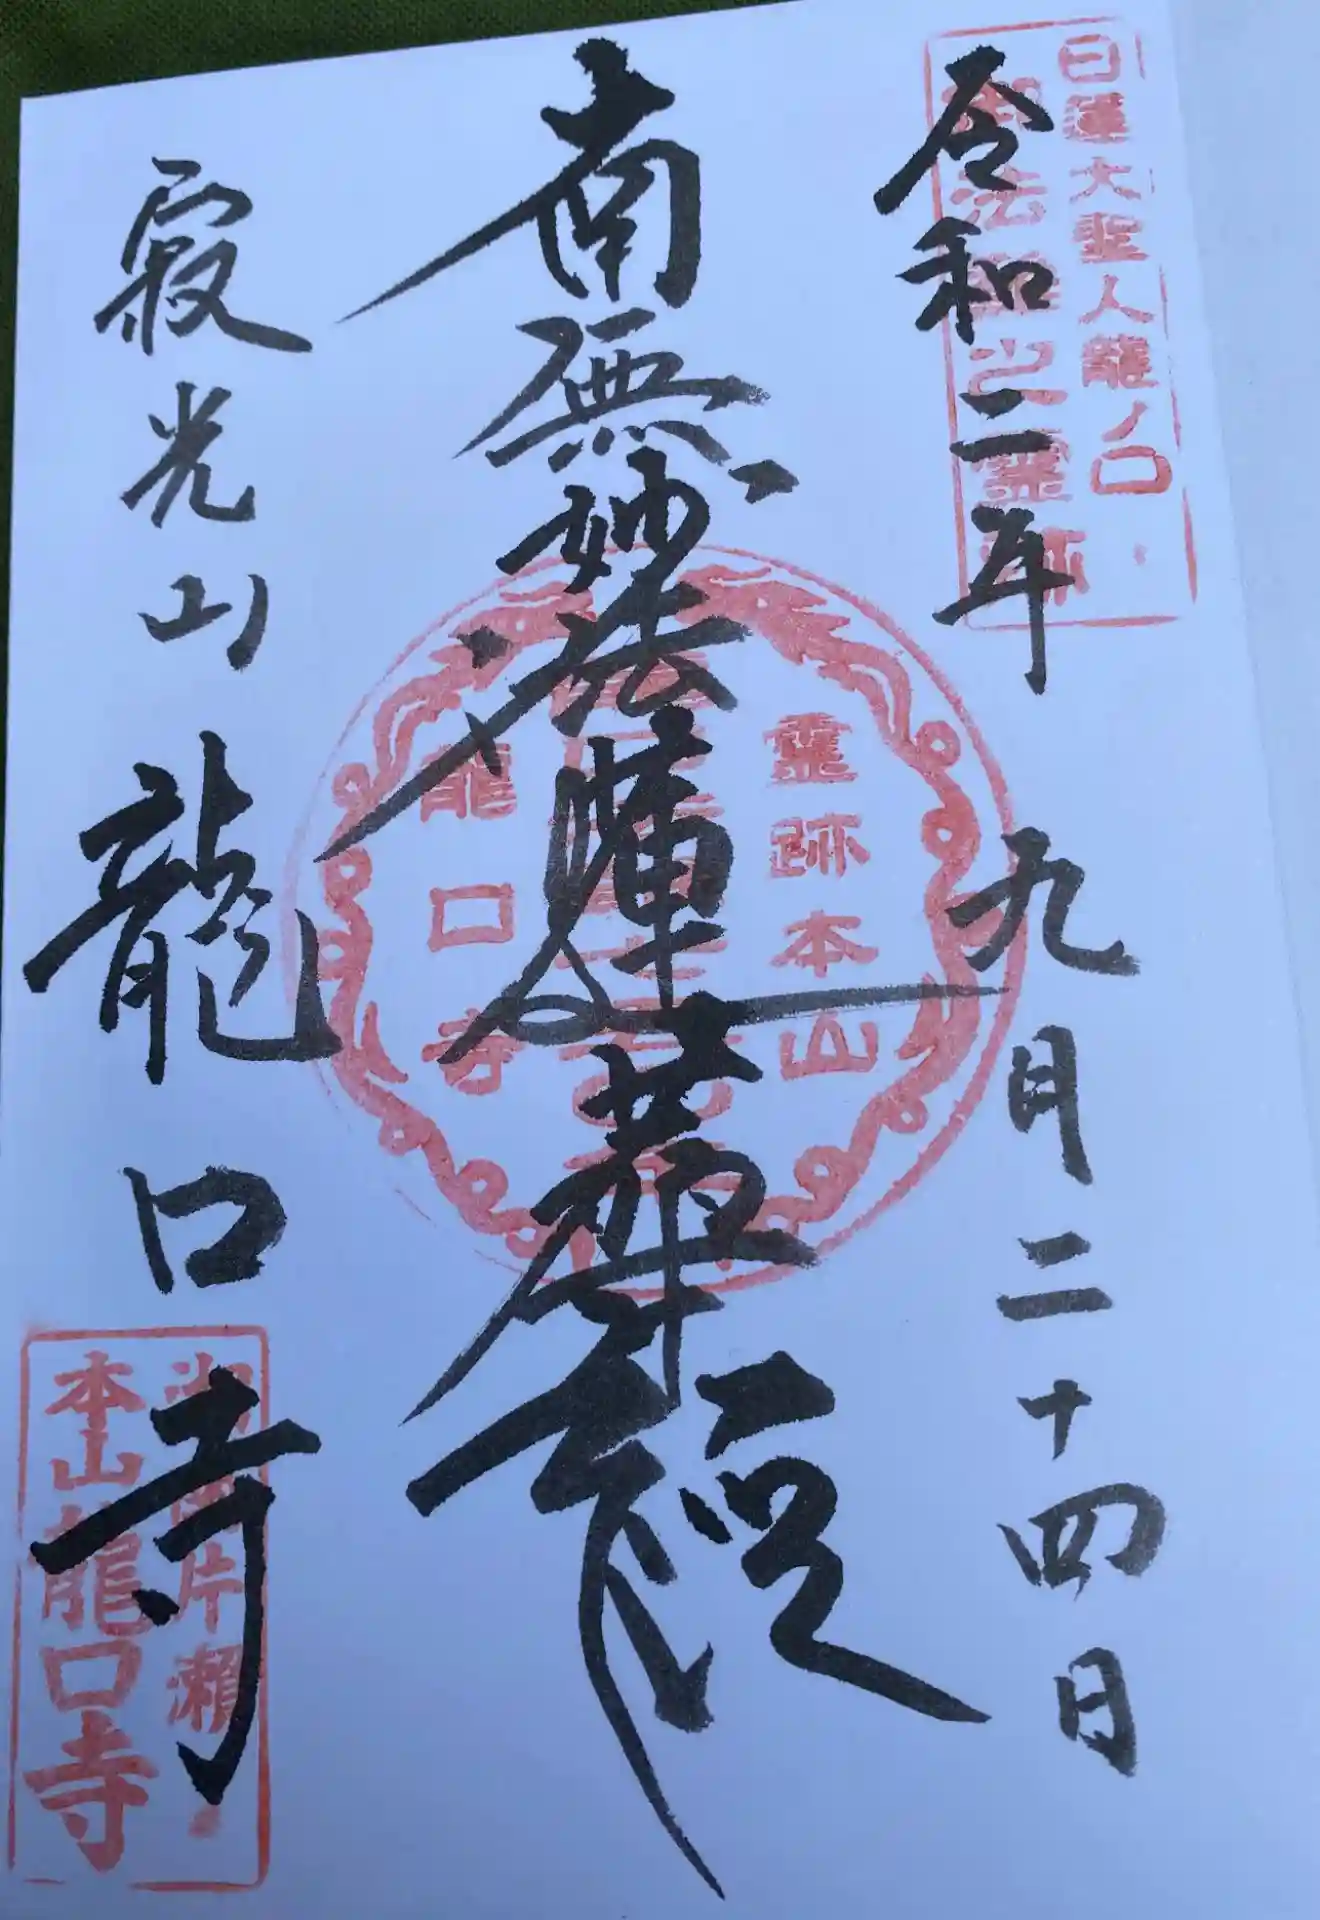 日蓮大聖人龍ノ口
御法難之霊跡
令和二年九月二十四日
南無妙法蓮華経
靈跡本山
龍口寺
寂光山龍口寺
片瀬
本山龍口寺